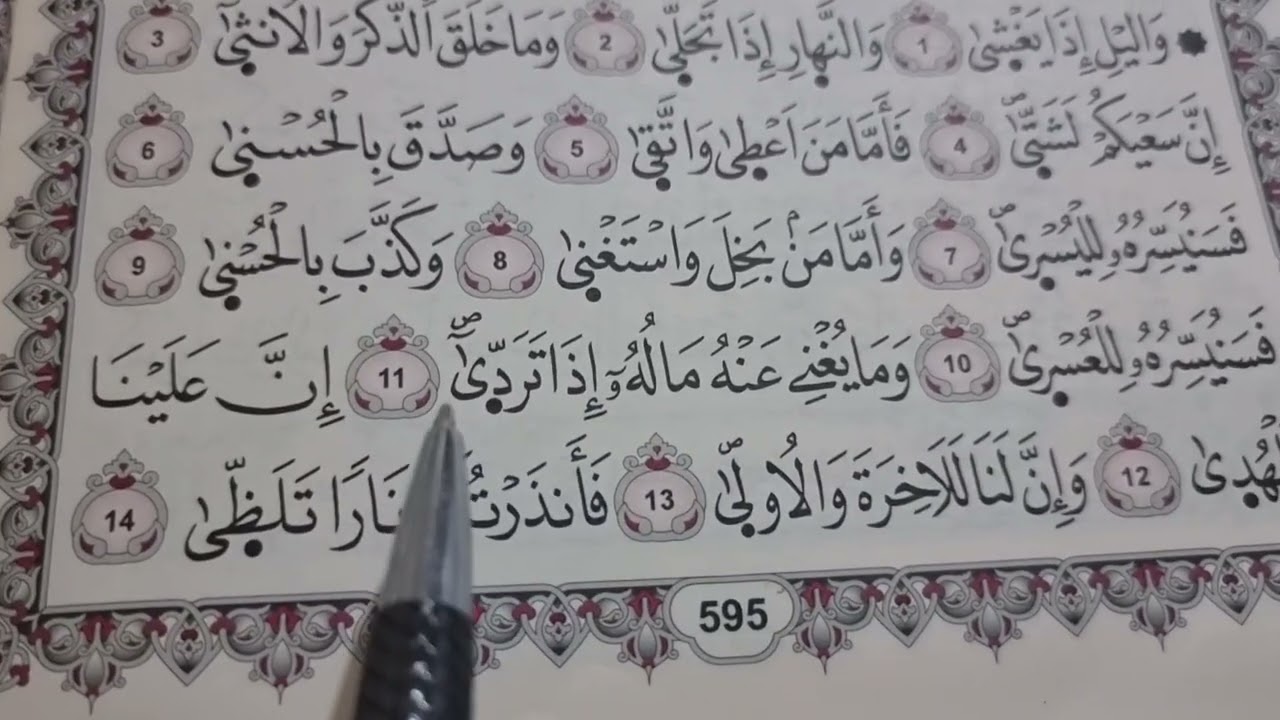 وَاليْلِ إِذَا يَغْشىٰ 1 وَالنَّهارِ إِذَا تَجَلّىٰ 2 وَمَا خَلَقَ اَلذَّكَرَ وَالُانثىٰٓ 3
إِنَّ سَعْيَكُمْ لَشَتّىٰ 4 فَأَمَّا مَنَ اَعْطىٰ وَاتَّقىٰ 5 وَصَدَّقَ بِالْحُسْنىٰ 6
فَسَنُيَسِّرُهُۥ لِلْيُسْرىٰ 7 وَأَمَّا مَنۢ بَخِلَ وَاسْتَغْنىٰ 8 وَكَذَّبَ بِالْحُسْنىٰ 9
فَسَنُيَسِّرُهُۥ لِلْعُسْرىٰ 10 وَمَا يُغْنِے عَنْهُ مَالُهُۥٓ إِذَا تَرَدّىٰٓ 11 إِنَّ عَلَيْنَا
لَلْهُدىٰ 12 وَإِنَّ لَنَا لَلَاخِرَةَ وَالُاولىٰ 13 فَأَنذَرْتُكُمْ نَارًا تَلَظّىٰ 14
595